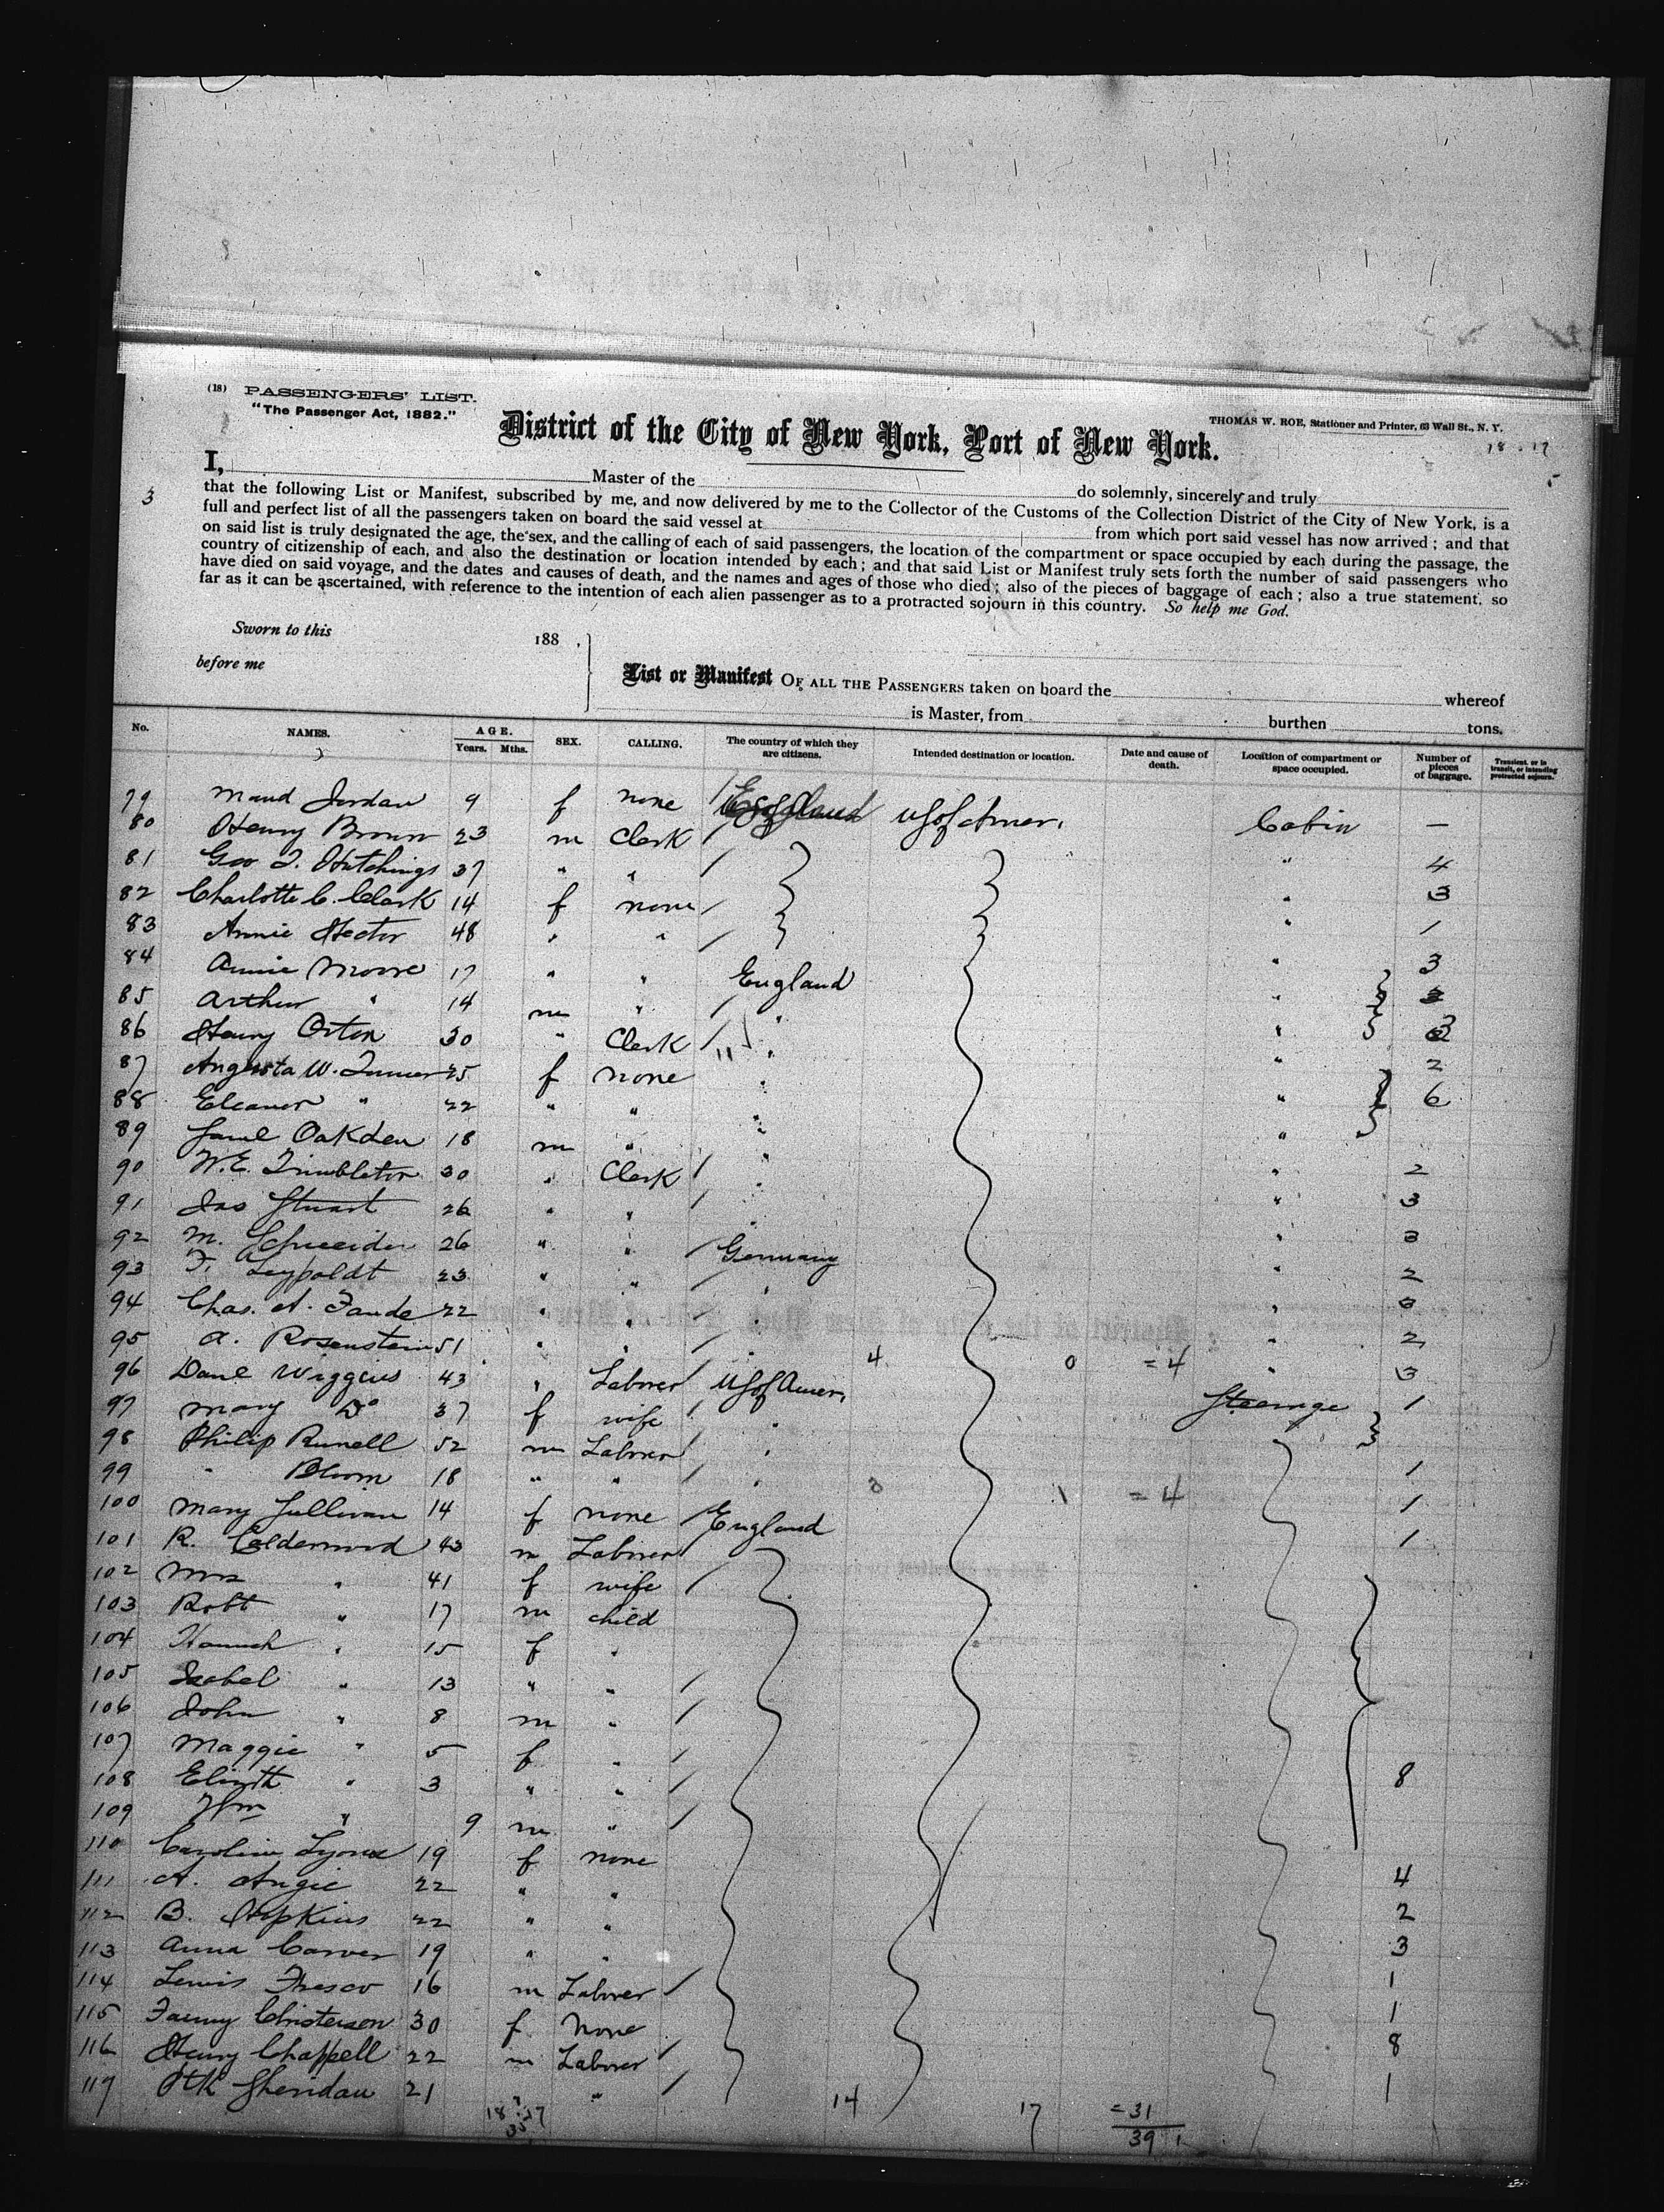 (18) PASSENGERS' LIST.
"The Passenger Act, 1882."
THOMAS W. ROE, Stationer and Printer, 63 Wall St., N. Y.
District of the City of New York, Port of New York.
18 . 17
3
I, Master of the do solemnly, sincerely and truly
that the following List or Manifest, subscribed by me, and now delivered by me to the Collector of the Customs of the Collection District of the City of New York, is a
full and perfect list of all the passengers taken on board the said vessel at from which port said vessel has now arrived; and that
on said list is truly designated the age, the sex, and the calling of each of said passengers, the location of the compartment or space occupied by each during the passage, the
country of citizenship of each, and also the destination or location intended by each; and that said List or Manifest truly sets forth the number of said passengers who
have died on said voyage, and the dates and causes of death, and the names and ages of those who died; also of the pieces of baggage of each; also a true statement, so
far as it can be ascertained, with reference to the intention of each alien passenger as to a protracted sojourn in this country. So help me God.
Sworn to this 188 .
before me
List or Manifest OF ALL THE PASSENGERS taken on board the whereof
is Master, from burthen tons.
No. NAMES. AGE. Years. Mths. SEX. CALLING. The country of which they are citizens. Intended destination or location. Date and cause of death. Location of compartment or space occupied. Number of pieces of baggage. Transient, or in transit, or intending protracted sojourn.
79 Maud Jordan 9 f none England U S of Amer. Cabin —
80 Henry Brown 23 m Clerk 4
81 Geo T. Hutchings 37 " " " 3
82 Charlotte C. Clark 14 f none " 1
83 Annie Hector 48 " " " 3
84 Annie Moore 17 " " England "
85 Arthur " 14 m " " " 3
86 Henry Orton 30 " Clerk " " 2
87 Augusta W. Turner 25 f none " " 6
88 Eleanor " 22 " " " "
89 Saml Oakden 18 m " " " 2
90 W. E. Trimbleton 30 " Clerk " " 3
91 Jas Stuart 26 " " " " 3
92 M. Schneider 26 " " Germany " 2
93 F. Leypoldt 23 " " " " 3
94 Chas. A. Faude 22 " " " " 2
95 A. Rosenstein 51 " " " 4 0 = 4 " 3
96 Danl Wiggins 43 " Laborer U S of Amer. Steerage 1
97 Mary Do 37 f wife "
98 Philip Runell 52 m Laborer " 1
99 " Bloom 18 " " " 3 1 = 4 1
100 Mary Sullivan 14 f none England 1
101 R. Calderwood 43 m Laborer
102 Mrs " 41 f wife
103 Robt " 17 m child
104 Hannah " 15 f "
105 Isabel " 13 " "
106 John " 8 m "
107 Maggie " 5 f " 8
108 Elizth " 3 " "
109 Wm " 9 m "
110 Caroline Lyons 19 f none 4
111 A. Angie 22 " " 2
112 B. Hopkins 22 " " 3
113 Anna Carver 19 " " 1
114 Lewis Fresco 16 m Laborer 1
115 Fanny Christensen 30 f None 8
116 Henry Chappell 22 m Laborer 1
117 Ptk Sheridan 21 "
14 17 = 31
39